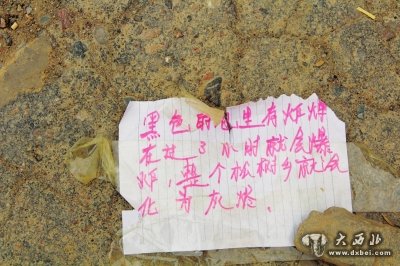 黑色的包里有炸弹
在过3小时就会爆
炸，整个松树乡就会
化为灰烬.
大西北
www.dxbei.com